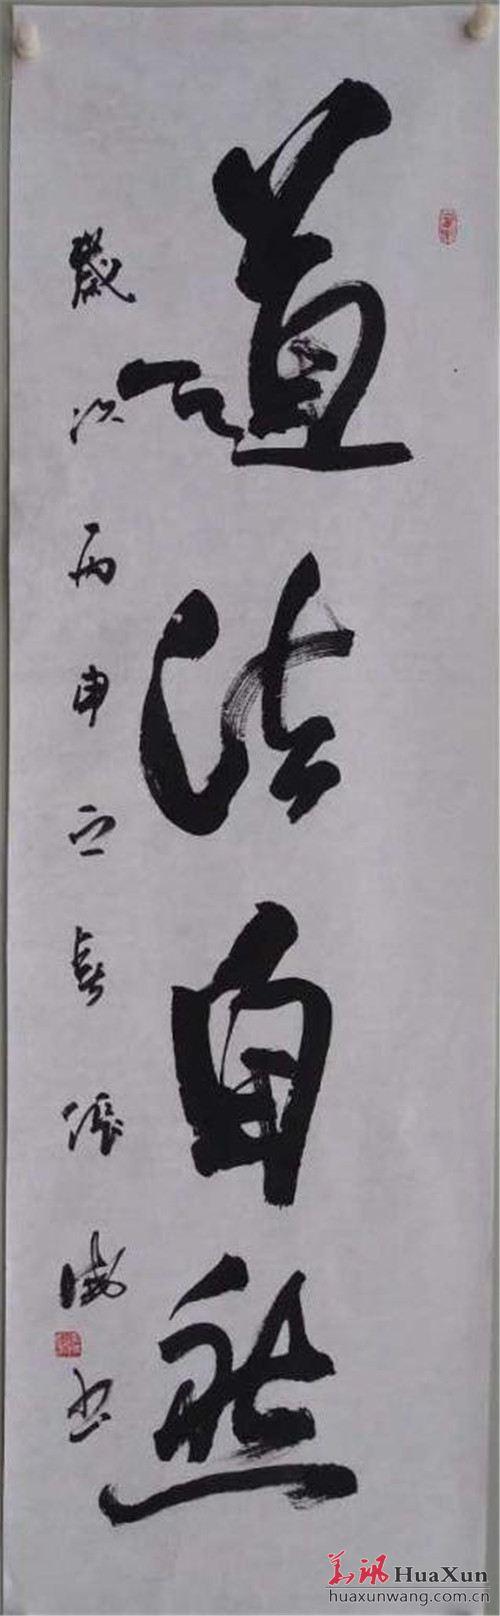 道法自然
歲次丙申之春張斌书
華訊HuaXun
huaxunwang.com.cn